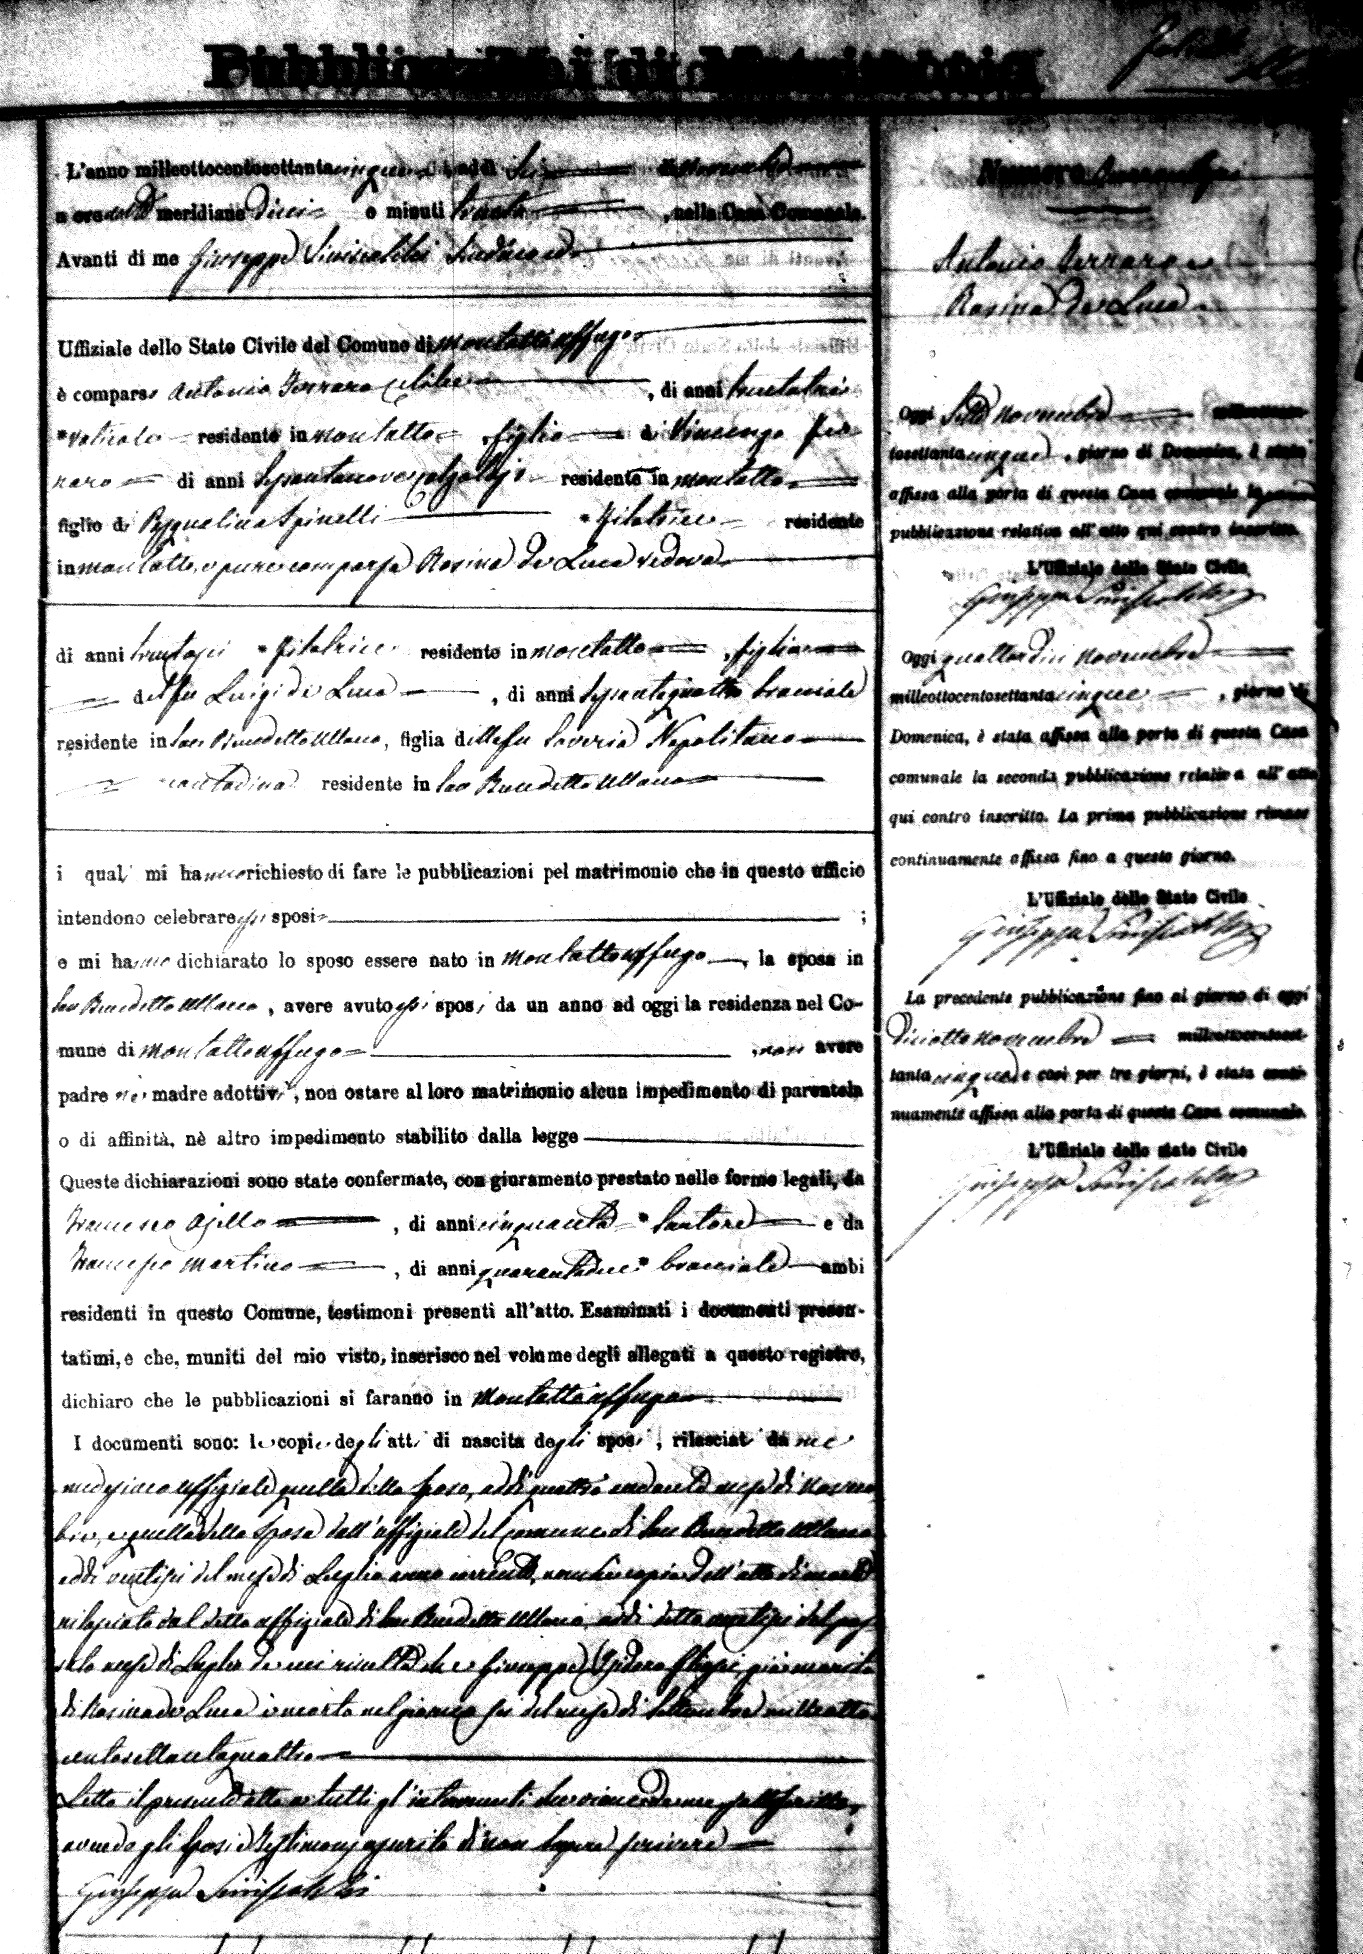 Pubblicazioni di Matrimonio
L'anno milleottocentosettantacinque addì sei di Novembre
a ore meridiane dieci e minuti trenta, nella Casa Comunale.
Avanti di me Giuseppe Siniscalchi Sindaco
Uffiziale dello Stato Civile del Comune di Montalto Uffugo
è comparso Antonio Ferraro celibe, di anni trentatrè
residente in Montalto, figlio di Vincenzo Fer
raro di anni sessantanove calzolajo residente in Montalto
figlio di Pasqualina Spinelli filatrice residente
in Montalto, e pure comparsa Rosina de Luca vedova
di anni trentasei filatrice residente in Montalto, figlia
del fu Luigi de Luca, di anni sessantaquattro bracciale
residente in San Benedetto Ullano, figlia della fu Saveria Napolitano
contadina residente in San Benedetto Ullano
i quali mi hanno richiesto di fare le pubblicazioni pel matrimonio che in questo ufficio
intendono celebrare essi sposi ;
e mi hanno dichiarato lo sposo essere nato in Montalto Uffugo, la sposa in
San Benedetto Ullano, avere avuto essi sposi da un anno ad oggi la residenza nel Co-
mune di Montalto Uffugo, non avere
padre nè madre adottivi, non ostare al loro matrimonio alcun impedimento di parentela
o di affinità, nè altro impedimento stabilito dalla legge
Queste dichiarazioni sono state confermate, con giuramento prestato nelle forme legali, da
Francesco Ajello, di anni cinquanta Sartore e da
Francesco Martino, di anni quarantadue bracciale ambi
residenti in questo Comune, testimoni presenti all'atto. Esaminati i documenti presen-
tatimi, e che, muniti del mio visto, inserisco nel volume degli allegati a questo registro,
dichiaro che le pubblicazioni si faranno in Montalto Uffugo
I documenti sono: le copie degli atti di nascita degli sposi, rilasciati da me
medesimo uffiziale quella dello sposo, addì quattro andante mese di Novem
bre, e quella della sposa dall'uffiziale del comune di San Benedetto Ullano
addì ventisei del mese di Luglio anno corrente, nonchè copia dell'atto di morte
rilasciato dal detto uffiziale di San Benedetto Ullano, addì detto ventisei del pas
sato mese di Luglio da cui risulta che Giuseppe Isidoro già marito
di Rosina de Luca è morto nel giorno sei del mese di Settembre milleotto
centosettantaquattro
Letto il presente atto a tutti gl'intervenuti si è da me sottoscritto,
avendo gli sposi e testimoni asserito di non sapere scrivere
Giuseppe Siniscalchi
Numero
Antonio Ferraro e
Rosina de Luca
Oggi sette Novembre milleottocen-
tosettantacinque, giorno di Domenica, è stata
affissa alla porta di questa Casa comunale la prima
pubblicazione relativa all'atto qui contro inscritto.
L'Uffiziale dello Stato Civile
Giuseppe Siniscalchi
Oggi quattordici Novembre
milleottocentosettantacinque, giorno di
Domenica, è stata affissa alla porta di questa Casa
comunale la seconda pubblicazione relativa all'atto
qui contro inscritto. La prima pubblicazione rimase
continuamente affissa fino a questo giorno.
L'Uffiziale dello Stato Civile
Giuseppe Siniscalchi
La precedente pubblicazione fino al giorno di oggi
diciotto Novembre milleottocentoset-
tantacinque e così per tre giorni, è stata conti-
nuamente affissa alla porta di questa Casa comunale.
L'Uffiziale dello stato Civile
Giuseppe Siniscalchi